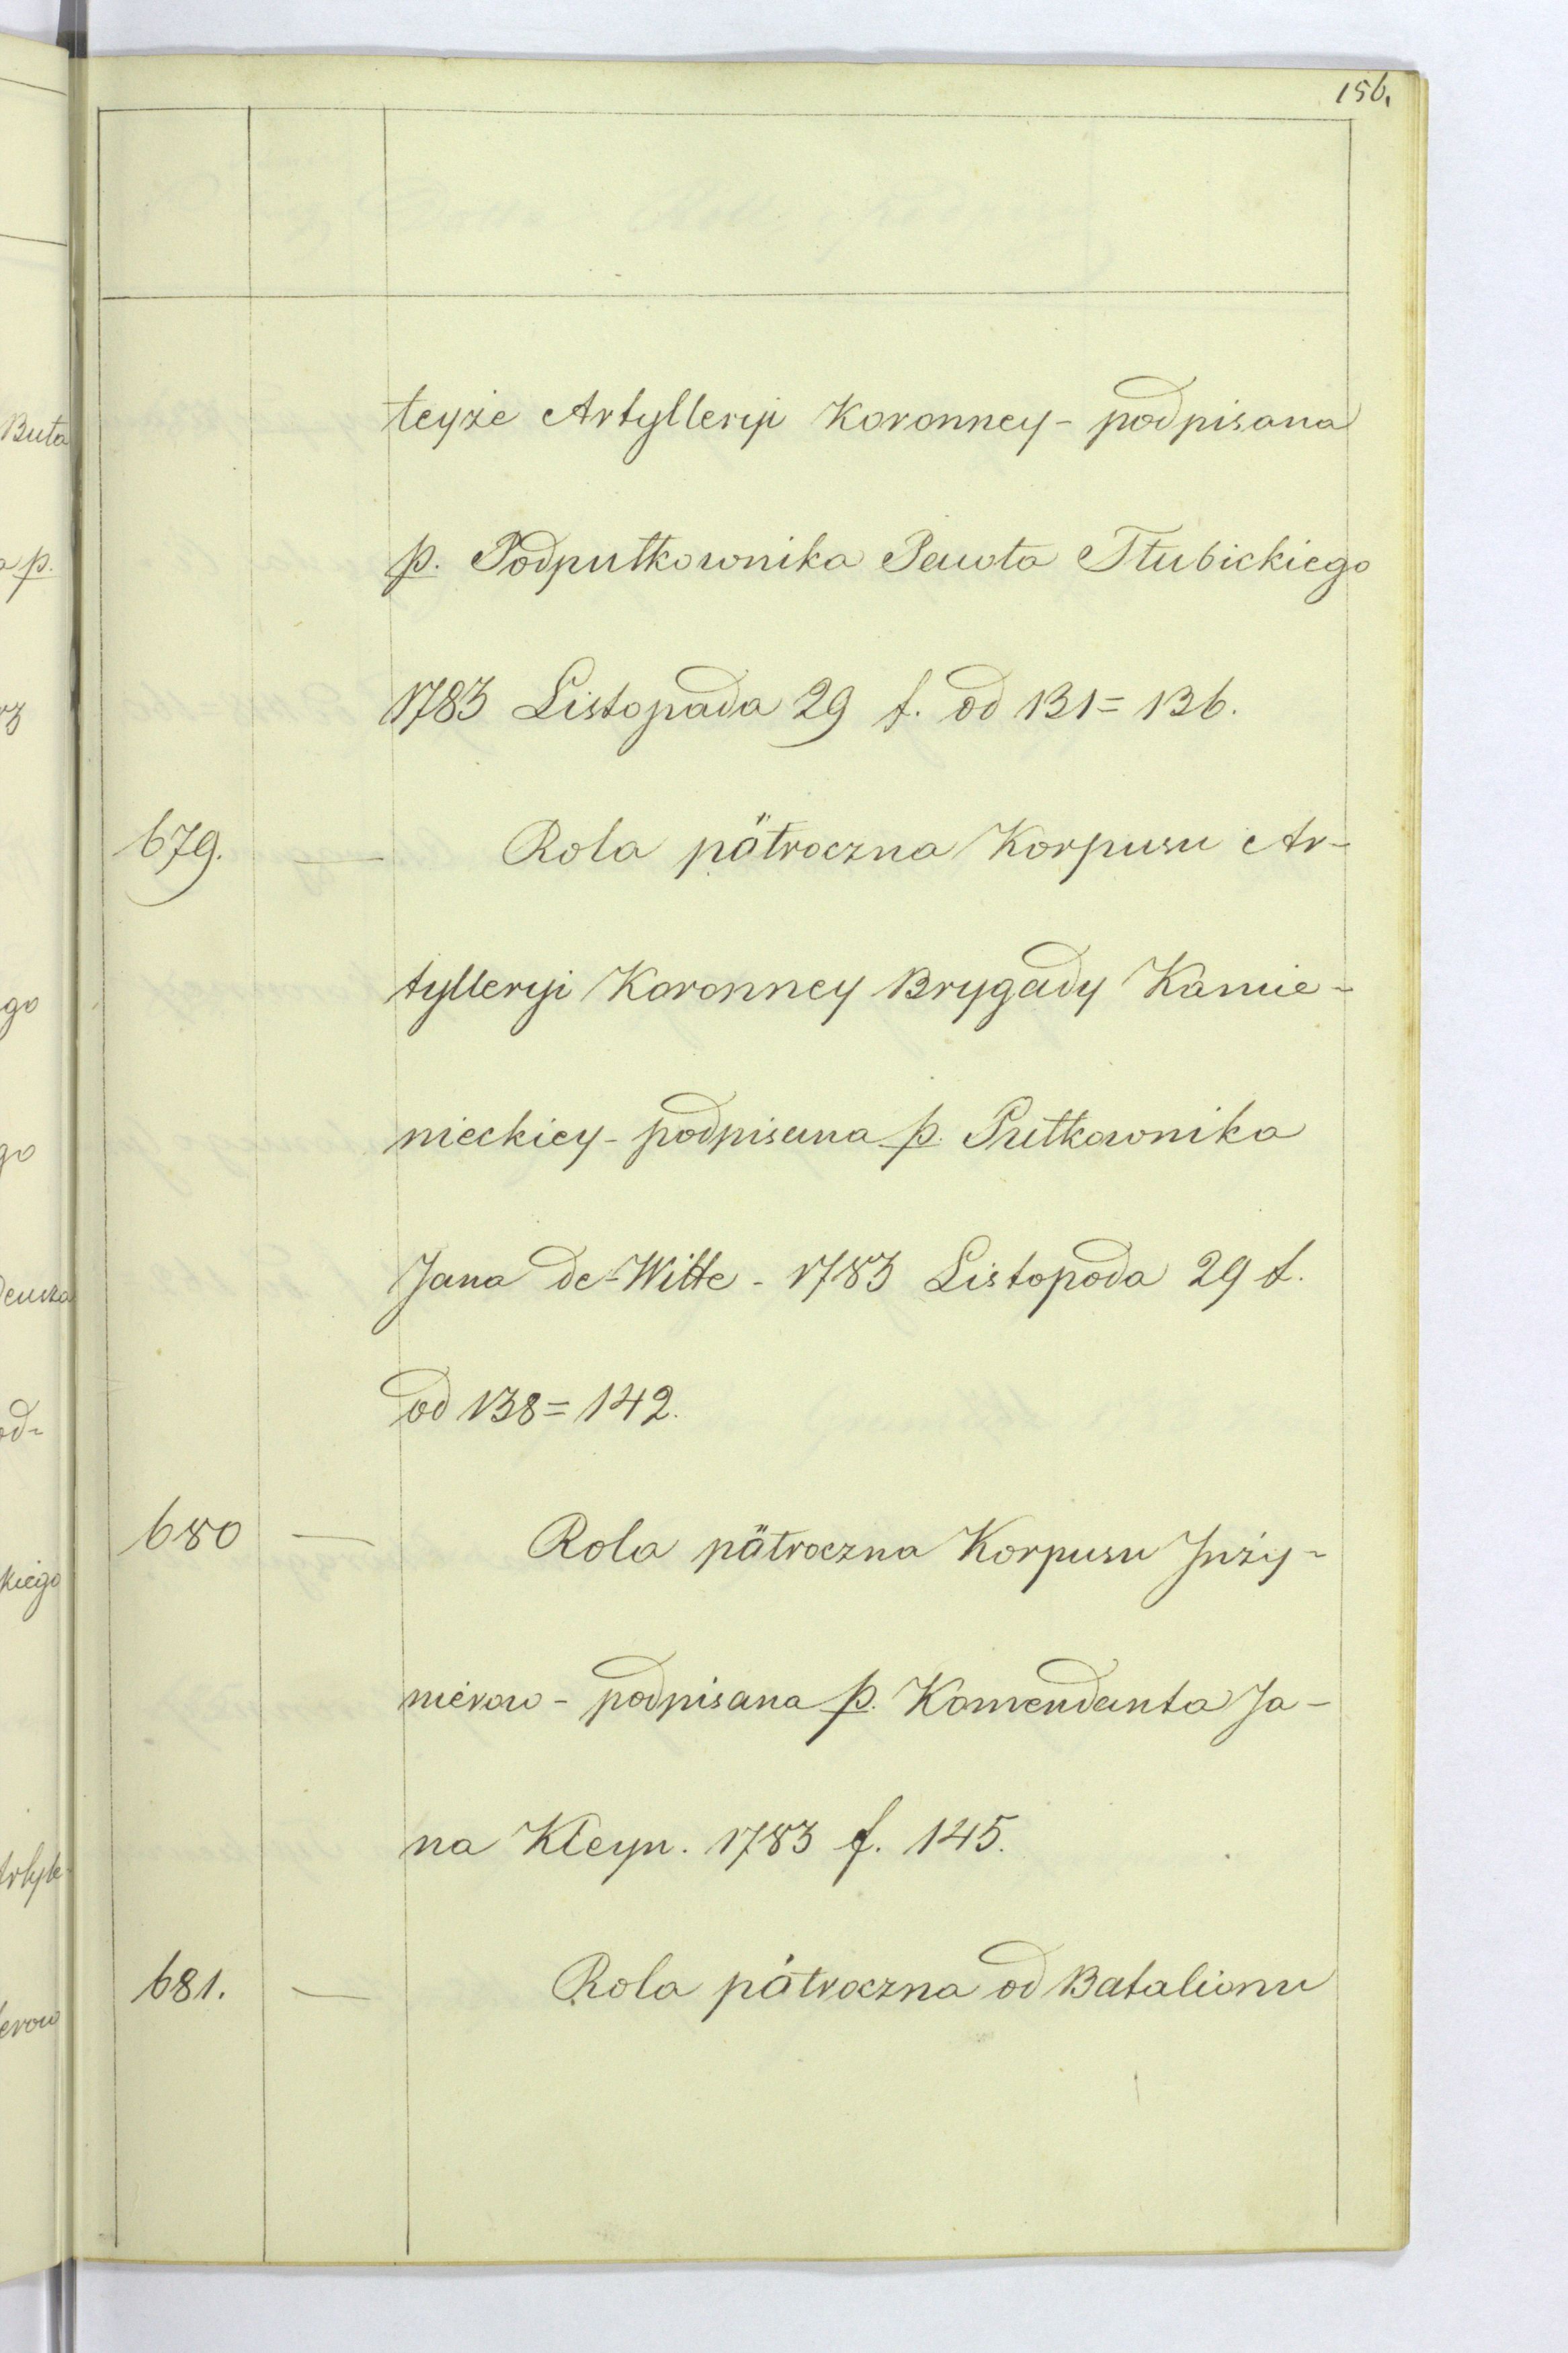 156.
teyże Artylleryi Koronney - podpisana
p. Podpułkownika Pawła Tłubickiego
1783 Listopada 29 f. od 131 = 136.
679. — Rola pótroczna Korpusu Ar-
tylleryi Koronney Brygady Kamie-
nieckiey - podpisana p. Pułkownika
Jana de-Witte - 1783 Listopada 29 f.
od 138 = 142.
680 — Rola pótroczna Korpusu Jnży-
nierow - podpisana p. Komendanta Ja-
na Kleyn. 1783 f. 145.
681. — Rola pótroczna od Batalionu